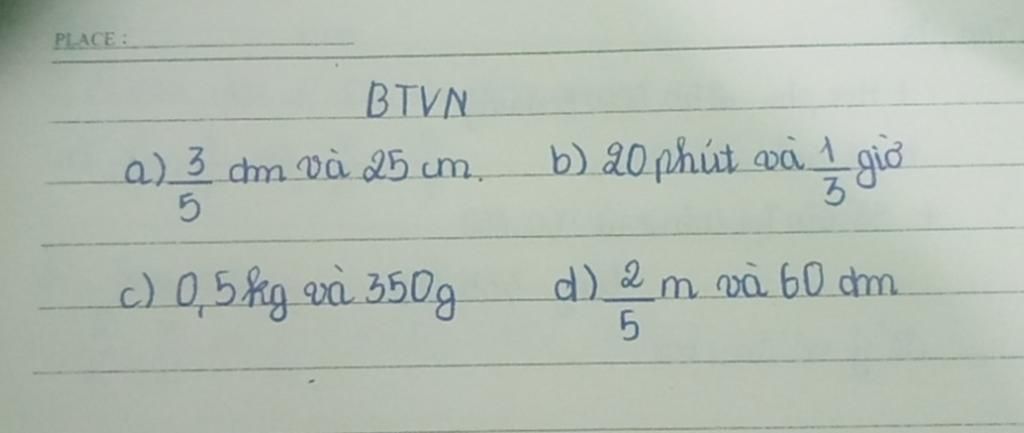 PLACE :
BTVN
a) 3/5 dm và 25 cm. b) 20 phút và 1/3 giờ
c) 0,5kg và 350g d) 2/5 m và 60 dm